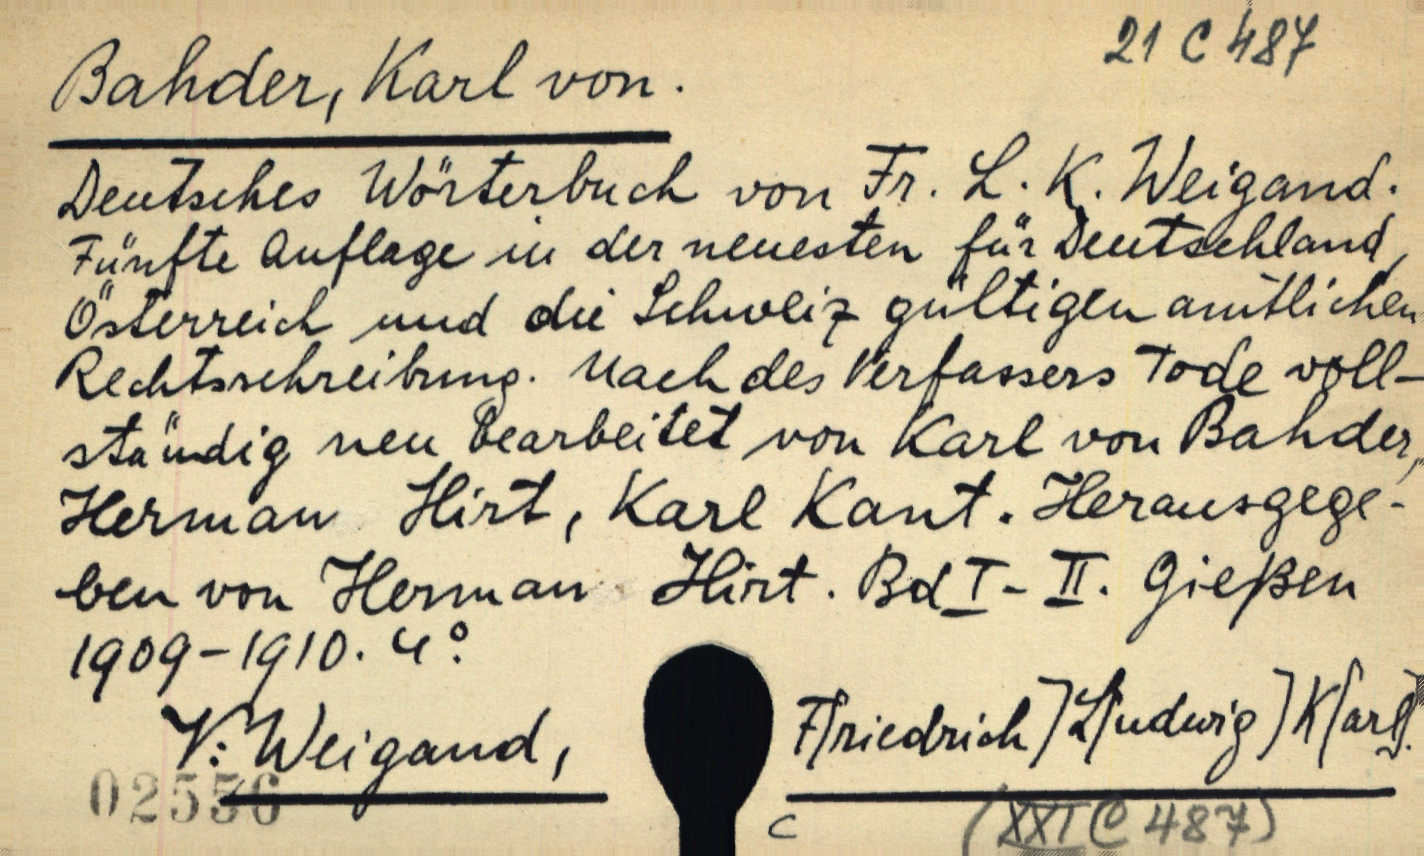 21 C 487
Bahder, Karl von.
Deutsches Wörterbuch von Fr. L. K. Weigand.
Fünfte Auflage in der neuesten für Deutschland,
Österreich und die Schweiz gültigen amtlichen
Rechtsschreibung. Nach des Verfassers Tode voll-
ständig neu bearbeitet von Karl von Bahder,
Herman Hirt, Karl Kant. Herausgege-
ben von Herman Hirt. Bd I - II. Gießen
1909-1910. 4°.
V: Weigand, F[riedrich] L[udwig] K[arl].
02556
C (XXI C 487)